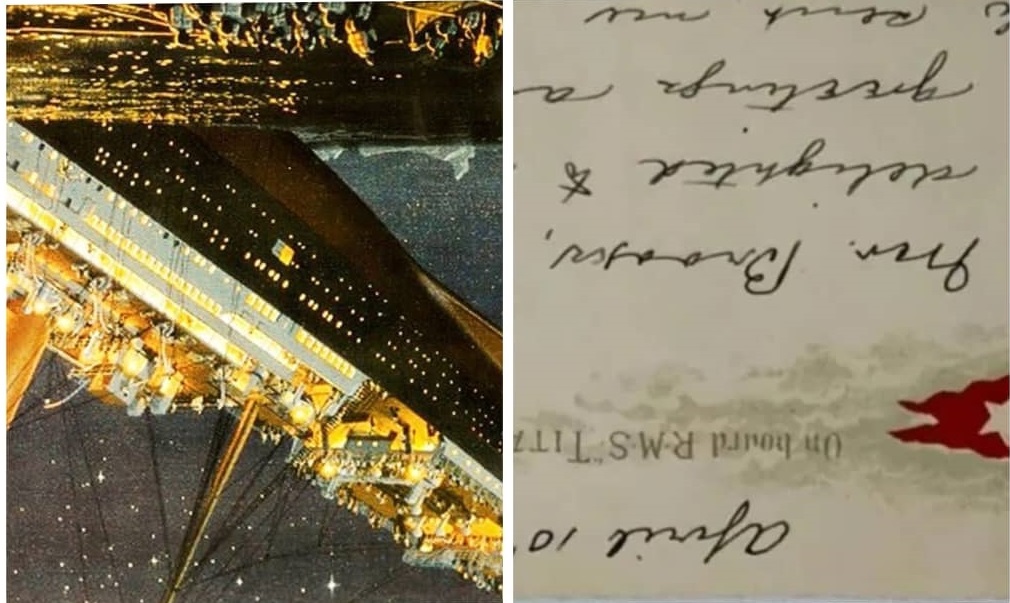 April 10
On board R.M.S. "TITA
Mr.
delighted to
greetings a
sent me